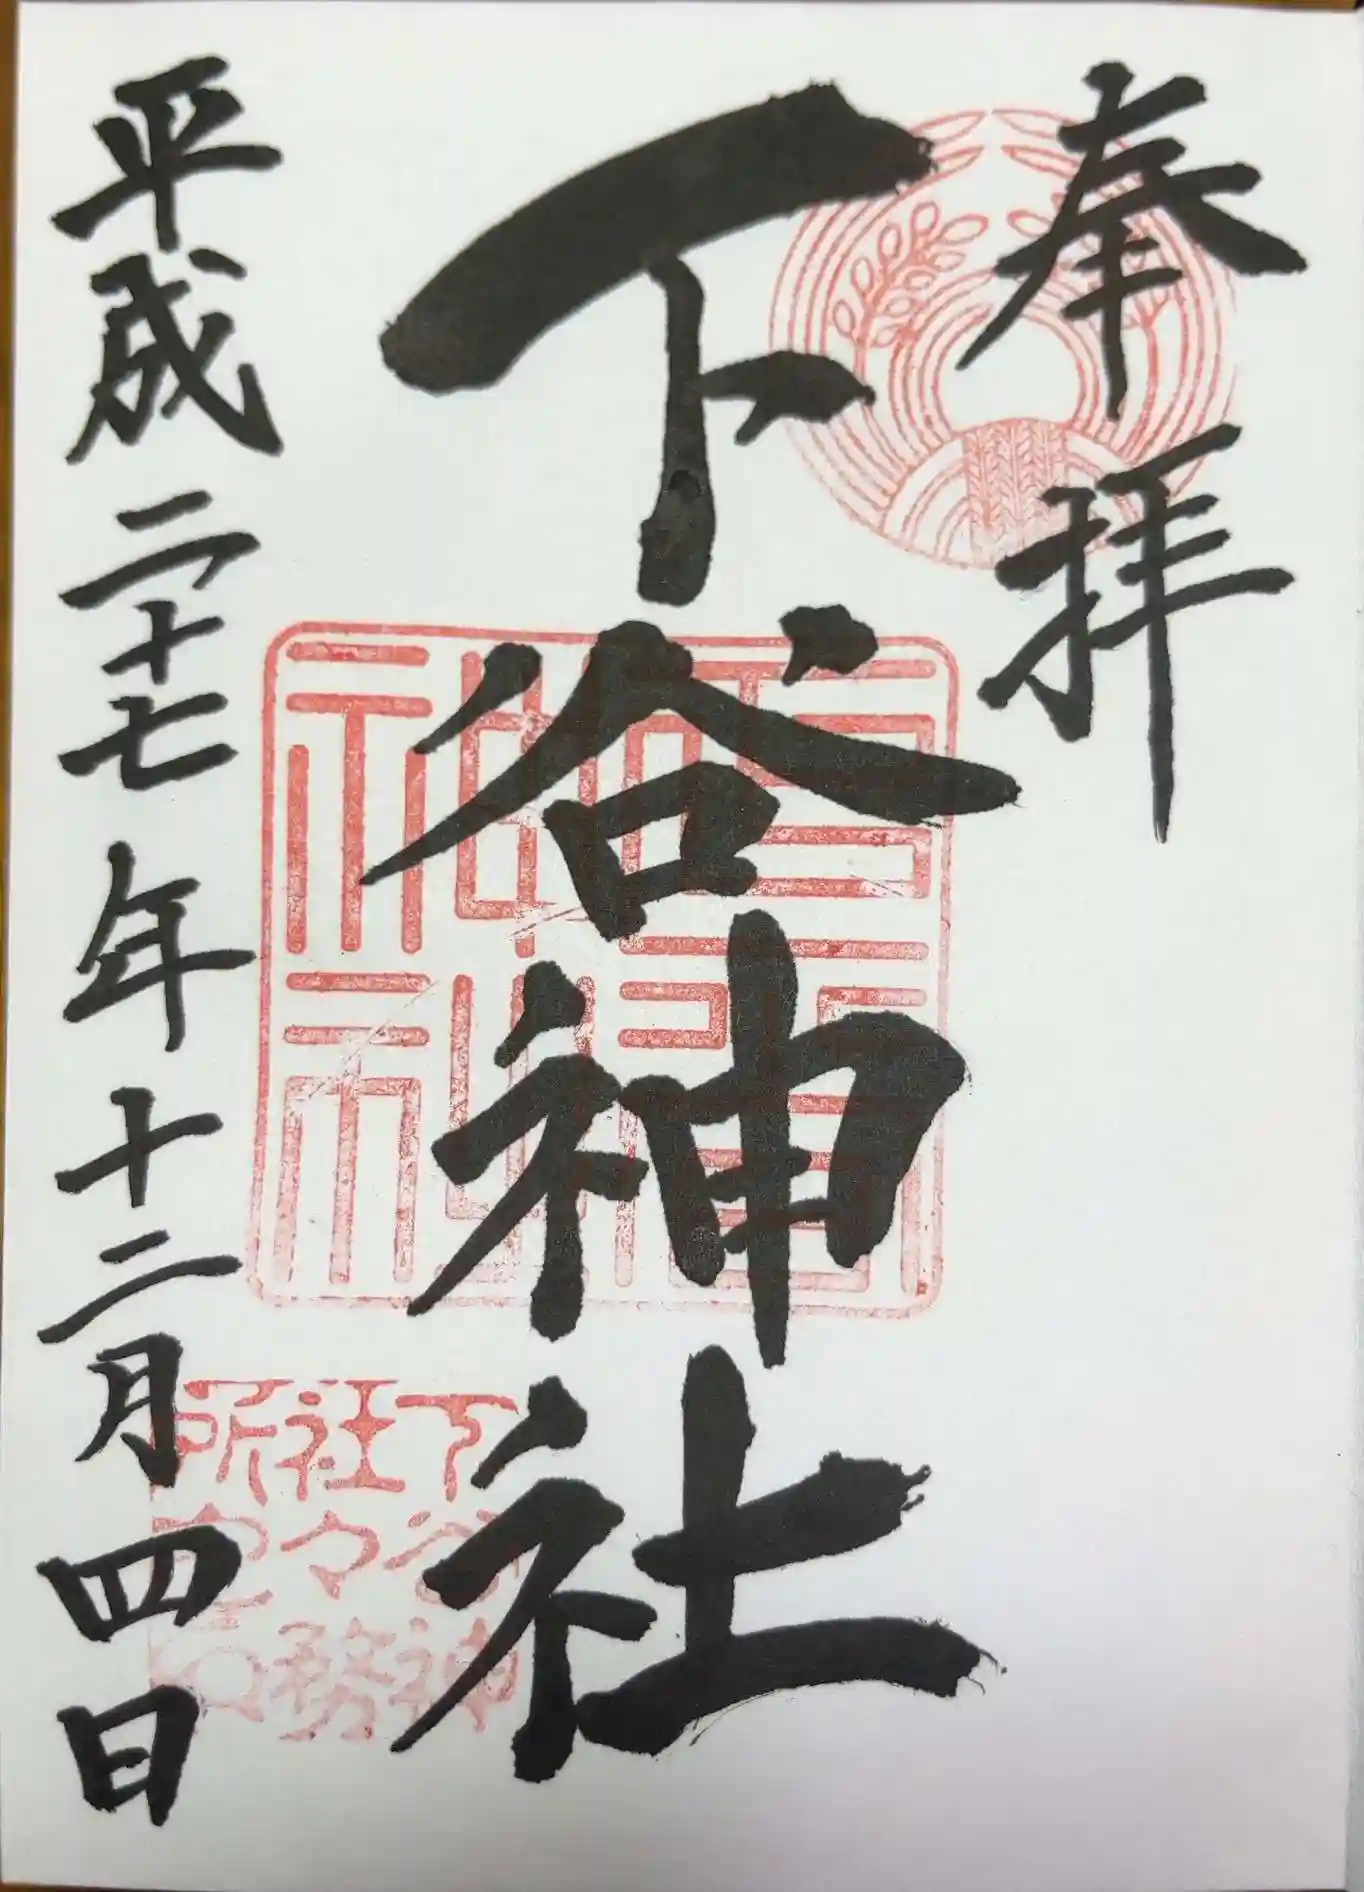 奉拝
下谷神社
平成二十七年十二月四日
下谷神
社々務
所